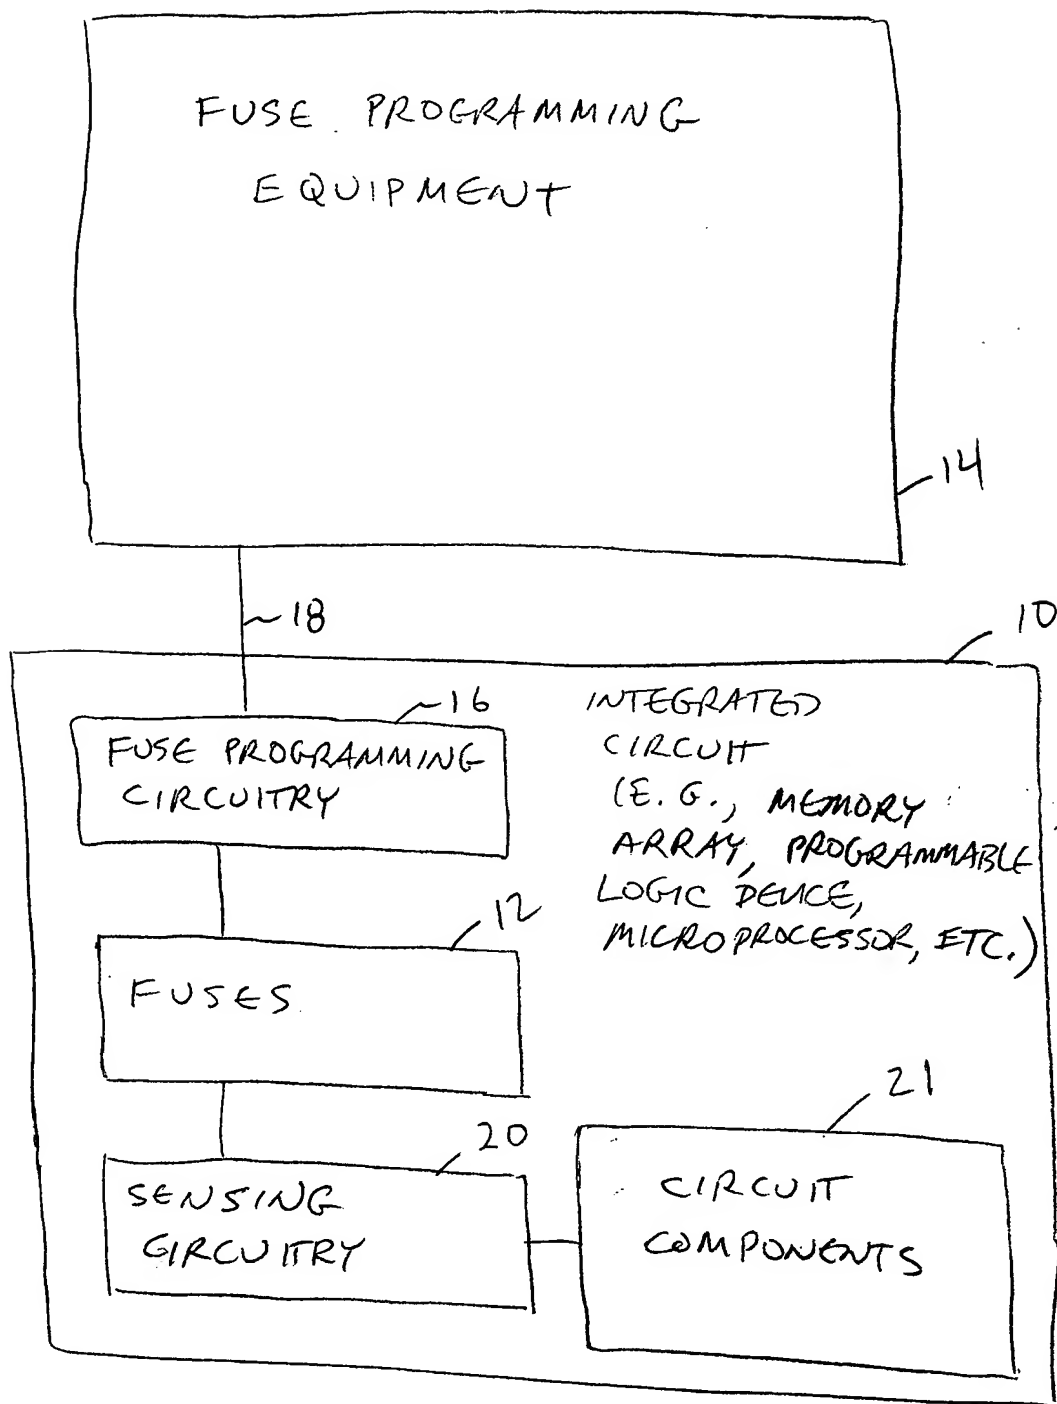 FUSE PROGRAMMING
EQUIPMENT
14
18
10
16
FUSE PROGRAMMING
CIRCUITRY
INTEGRATED
CIRCUIT
(E.G., MEMORY
ARRAY, PROGRAMMABLE
LOGIC DEVICE,
MICROPROCESSOR, ETC.)
12
FUSES
20
SENSING
CIRCUITRY
21
CIRCUIT
COMPONENTS